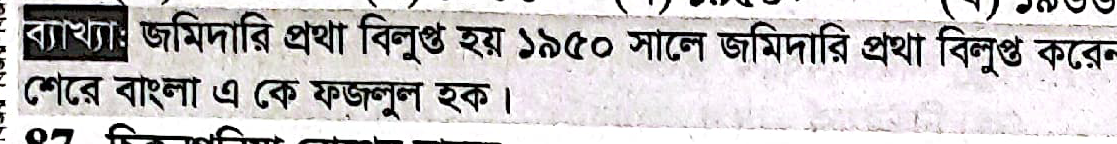 ব্যাখ্যাঃ জমিদারি প্রথা বিলুপ্ত হয় ১৯৫০ সালে জমিদারি প্রথা বিলুপ্ত করেন
শেরে বাংলা এ কে ফজলুল হক।